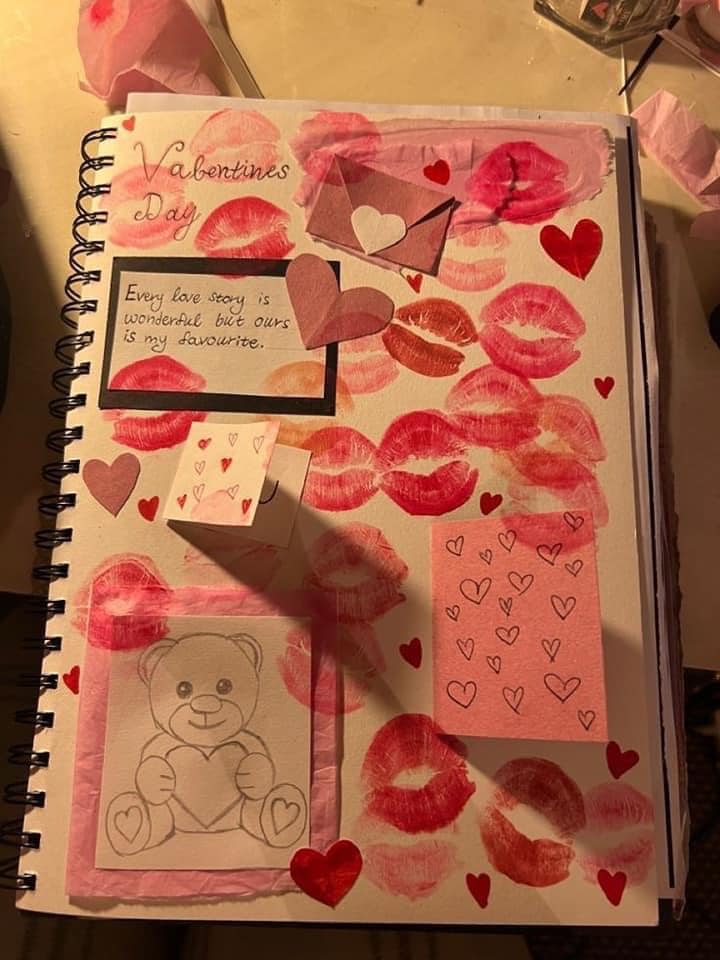 Valentines
Day
Every love story is
wonderful but ours
is my favourite.